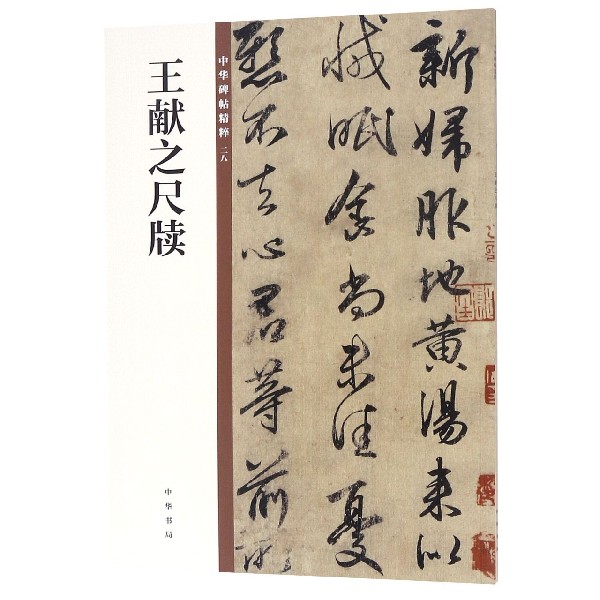 王献之尺牍
中华书局
中华碑帖精粹 二八
新婦服地黄湯来似
減眠食尚未佳憂
懸不去心君等前所